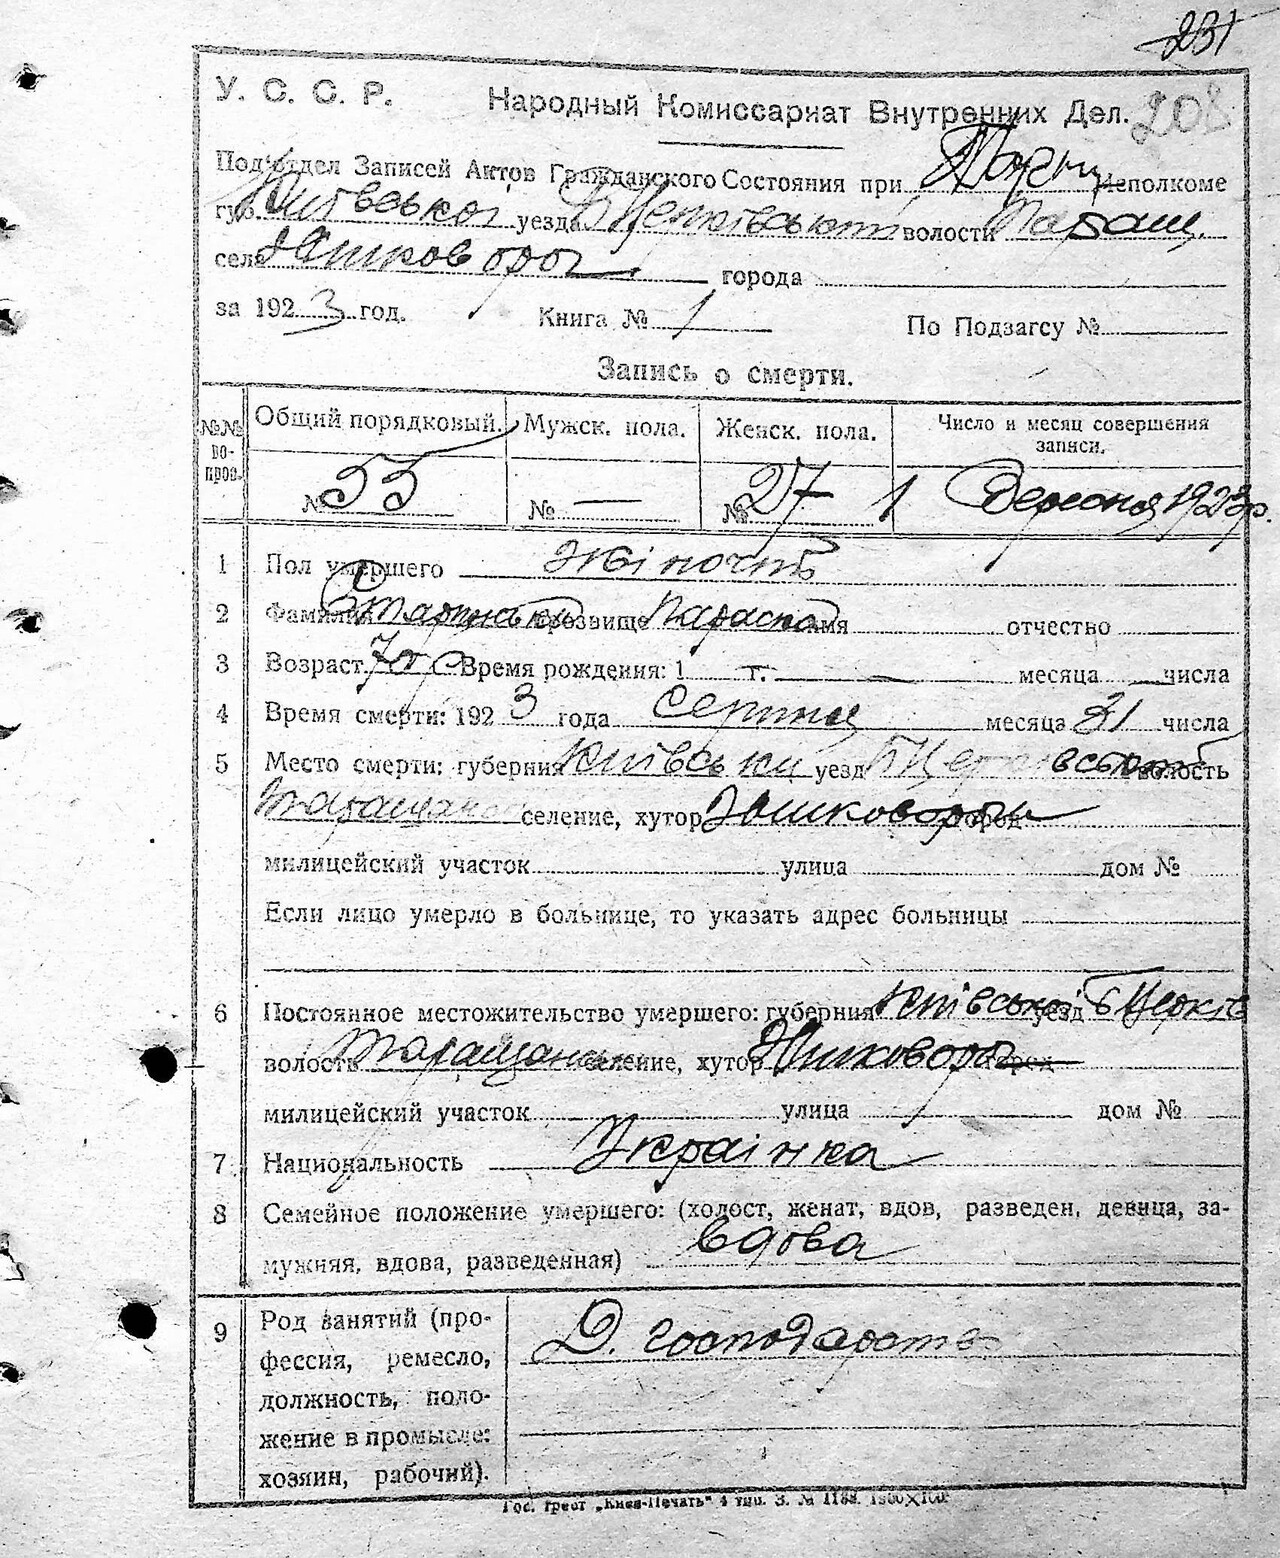 231
У. С. С. Р. Народный Комиссариат Внутренних Дел. 208
Подотдел Записей Актов Гражданского Состояния при Исполкоме
губ. Київської уезда Б Церківський волости Таращ.
села Юшков рог города
за 1923 год. Книга № 1 По Подзагсу №
Запись о смерти.
№№ вопров. Общий порядковый. Мужск. пола. Женск. пола. Число и месяц совершения записи.
№ 55 № — № 27 1 Вересня 1923 р.
1 Пол умершего жіночий
2 Фамилия прозвище Параска имя отчество
3 Возраст 70 р Время рождения: 1 г. — месяца — числа
4 Время смерти: 1923 года Серпня месяца 31 числа
5 Место смерти: губерния Київська уезд Б Церковський волость
Таращанська селение, хутор Юшков рог город
милицейский участок улица дом №
Если лицо умерло в больнице, то указать адрес больницы
6 Постоянное местожительство умершего: губерния Київська уезд Б Церків
волость Таращанська селение, хутор Юшков рог город
милицейский участок улица дом №
7 Национальность Українка
8 Семейное положение умершего: (холост, женат, вдов, разведен, девица, за-
мужняя, вдова, разведенная) вдова
9 Род занятий (про-
фессия, ремесло, Д. господарство
должность, поло-
жение в промысле:
хозяин, рабочий).
Гос. трест „Киев-Печать" 4 тип. З. № 1188.